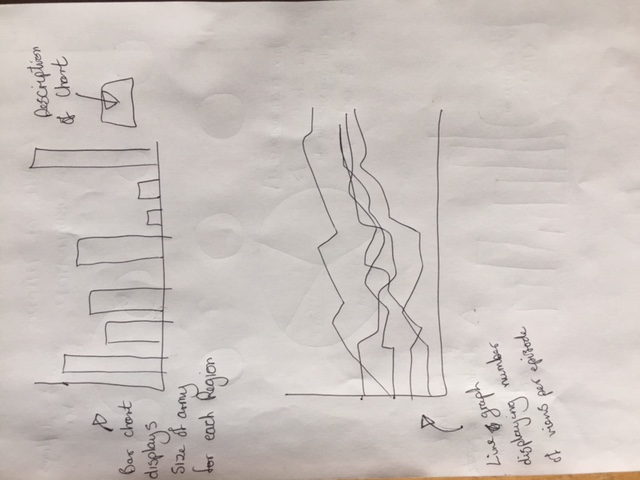 Description
of Chart
Bar chart
displays
Size of army
for each Region
Line graph
displaying number
of views per episode